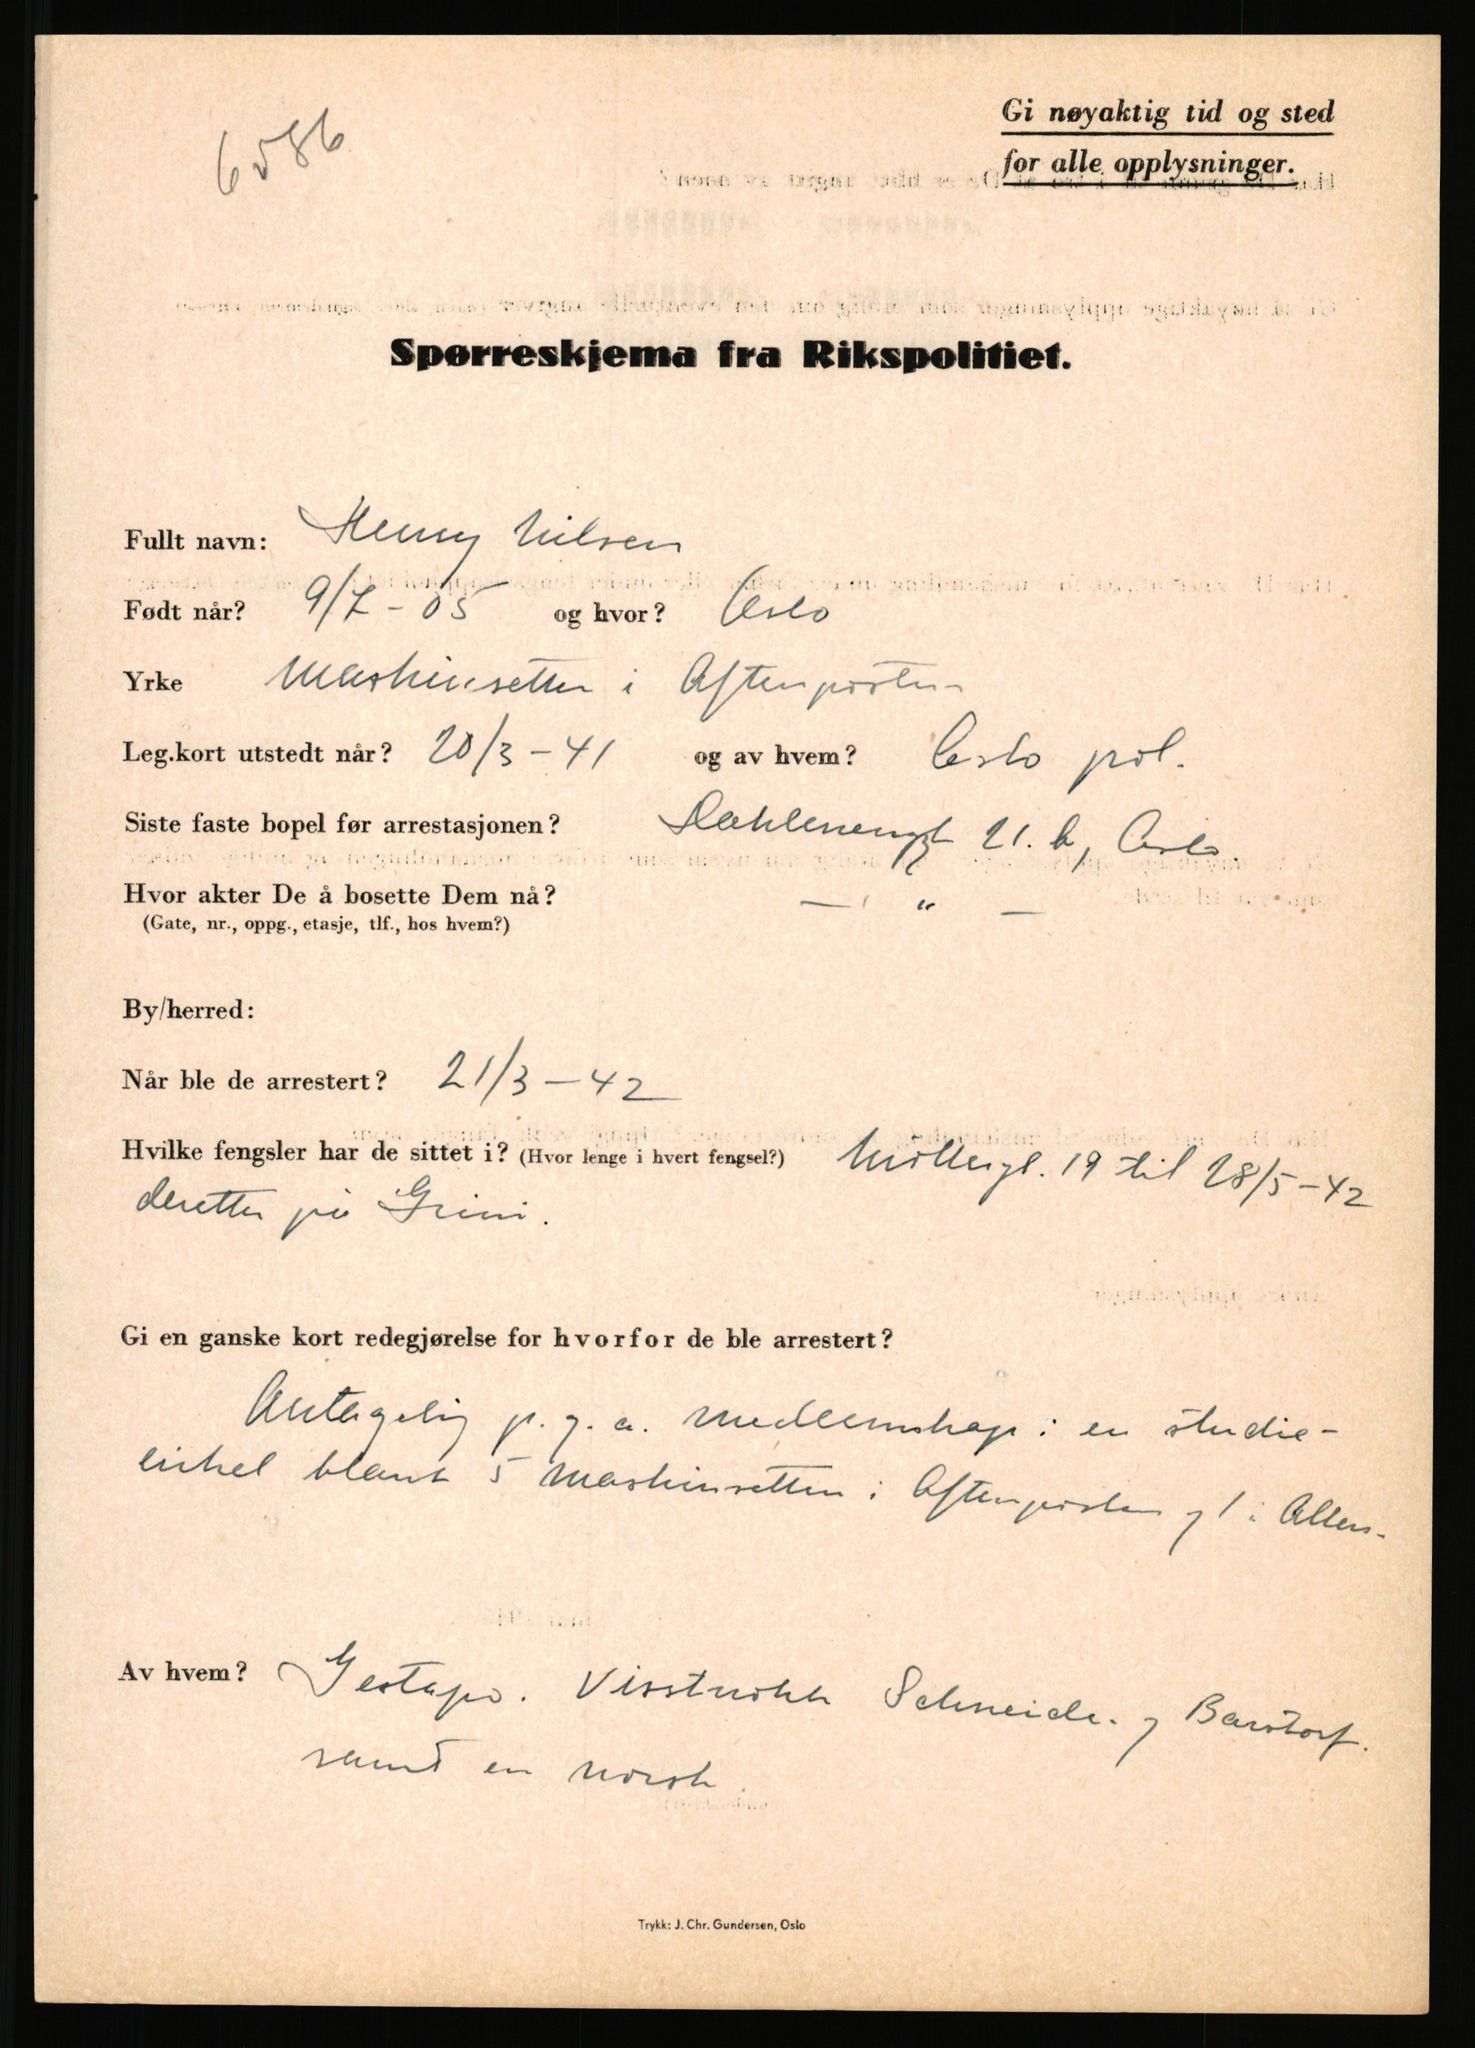 6586
Gi nøyaktig tid og sted
for alle opplysninger.
Spørreskjema fra Rikspolitiet.
Fullt navn: Henry Nilsen
Født når? 9/7 - 05 og hvor? Oslo
Yrke Maskinsetter i Aftenposten
Leg.kort utstedt når? 20/3 - 41 og av hvem? Oslo pol.
Siste faste bopel før arrestasjonen? 21. b, Oslo.
Hvor akter De å bosette Dem nå? — " —
(Gate, nr., oppg., etasje, tlf., hos hvem?)
By/herred:
Når ble de arrestert? 21/3 - 42
Hvilke fengsler har de sittet i? (Hvor lenge i hvert fengsel?) Møllergt. 19 til 28/5 - 42
deretter på Grini.
Gi en ganske kort redegjørelse for hvorfor de ble arrestert?
Antagelig p.g.a. medlemskap i en studie-
sirkel blant 5 maskinsettere i Aftenposten og 1 i Allers.
Av hvem? Gestapo. Visstnokk Schneider og
samt en norsk.
Trykk: J. Chr. Gundersen, Oslo